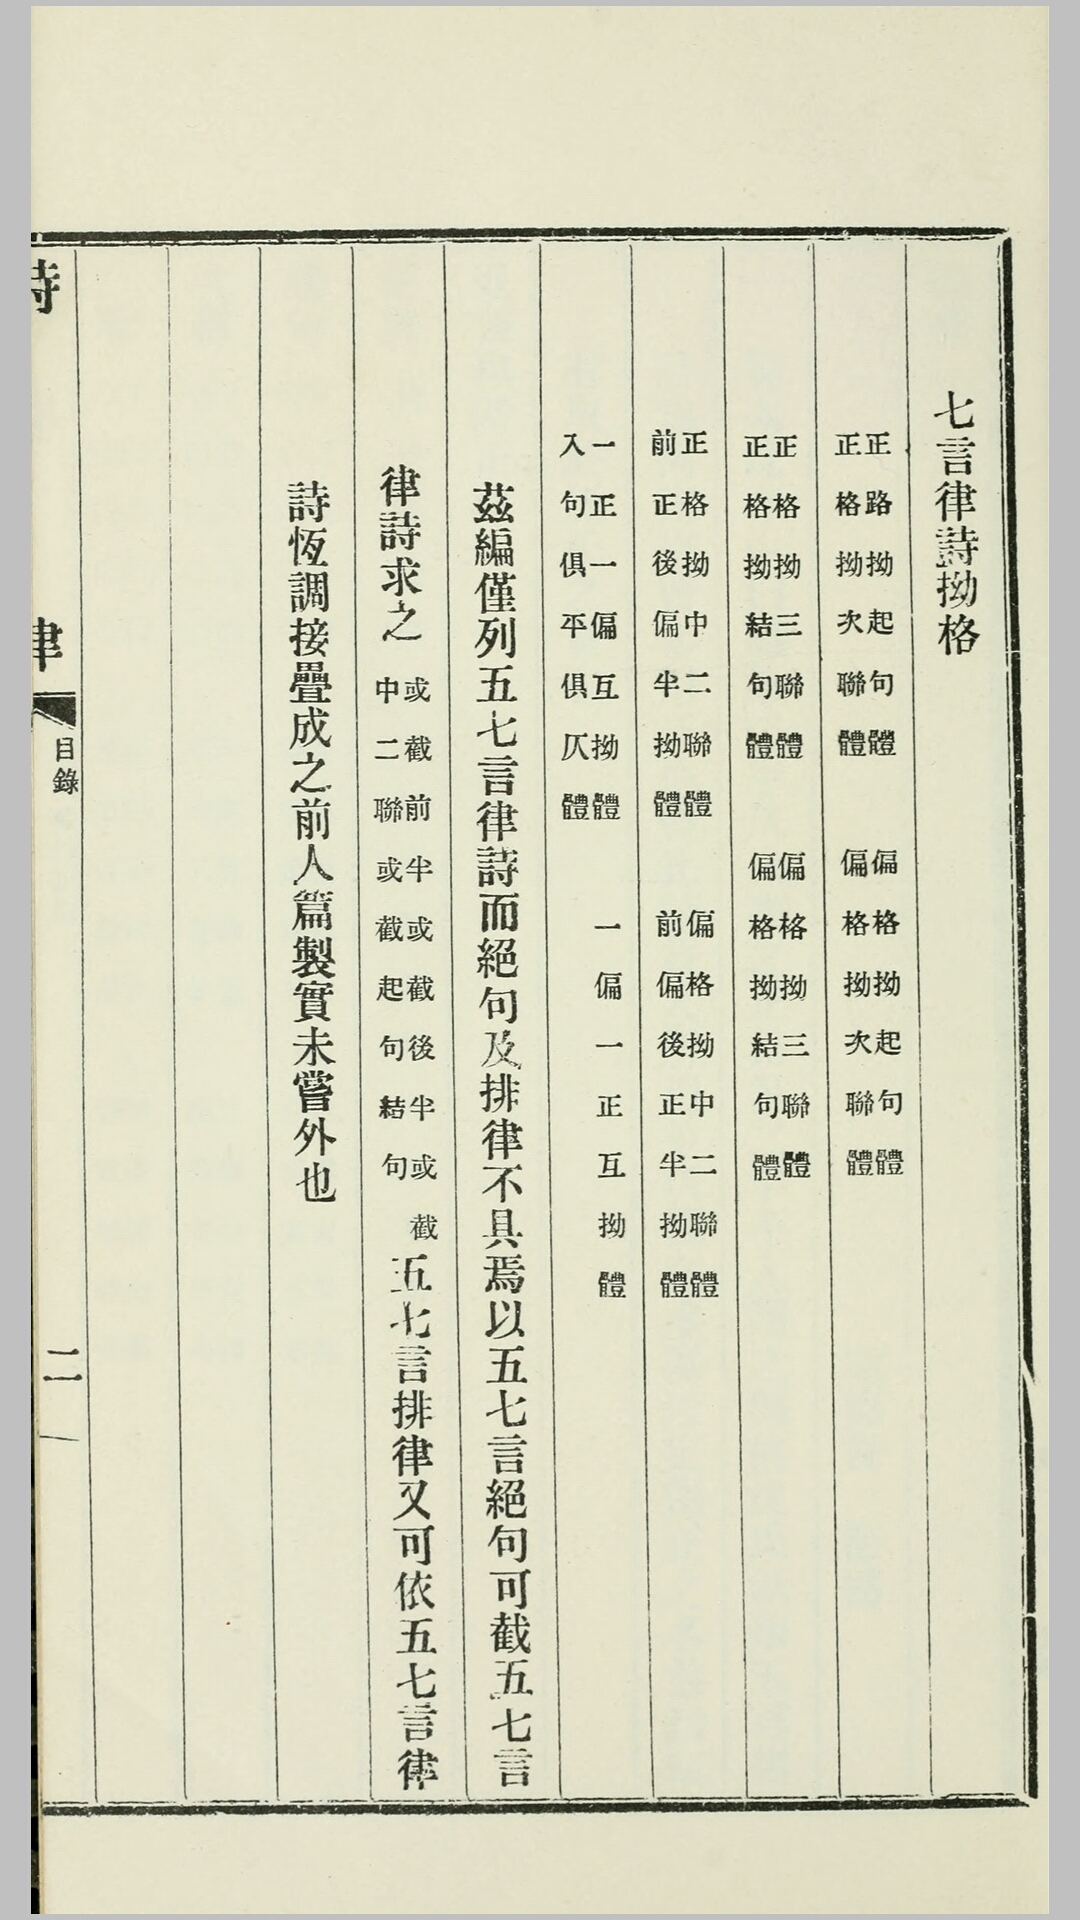 七言律詩拗格
正路拗起句體
正格拗次聯體
偏格拗起句體
偏格拗次聯體
正格拗三聯體
正格拗結句體
偏格拗三聯體
偏格拗結句體
正格拗中二聯體
前正後偏半拗體
偏格拗中二聯體
前偏後正半拗體
一正一偏互拗體
入句俱平俱仄體
一偏一正互拗體
茲編僅列五七言律詩而絕句及排律不具焉以五七言絕句可截五七言
律詩求之或截前半或截後半或截中二聯或截起句結句五七言排律又可依五七言律
詩恆調接疊成之前人篇製實未嘗外也
詩律
目錄
二